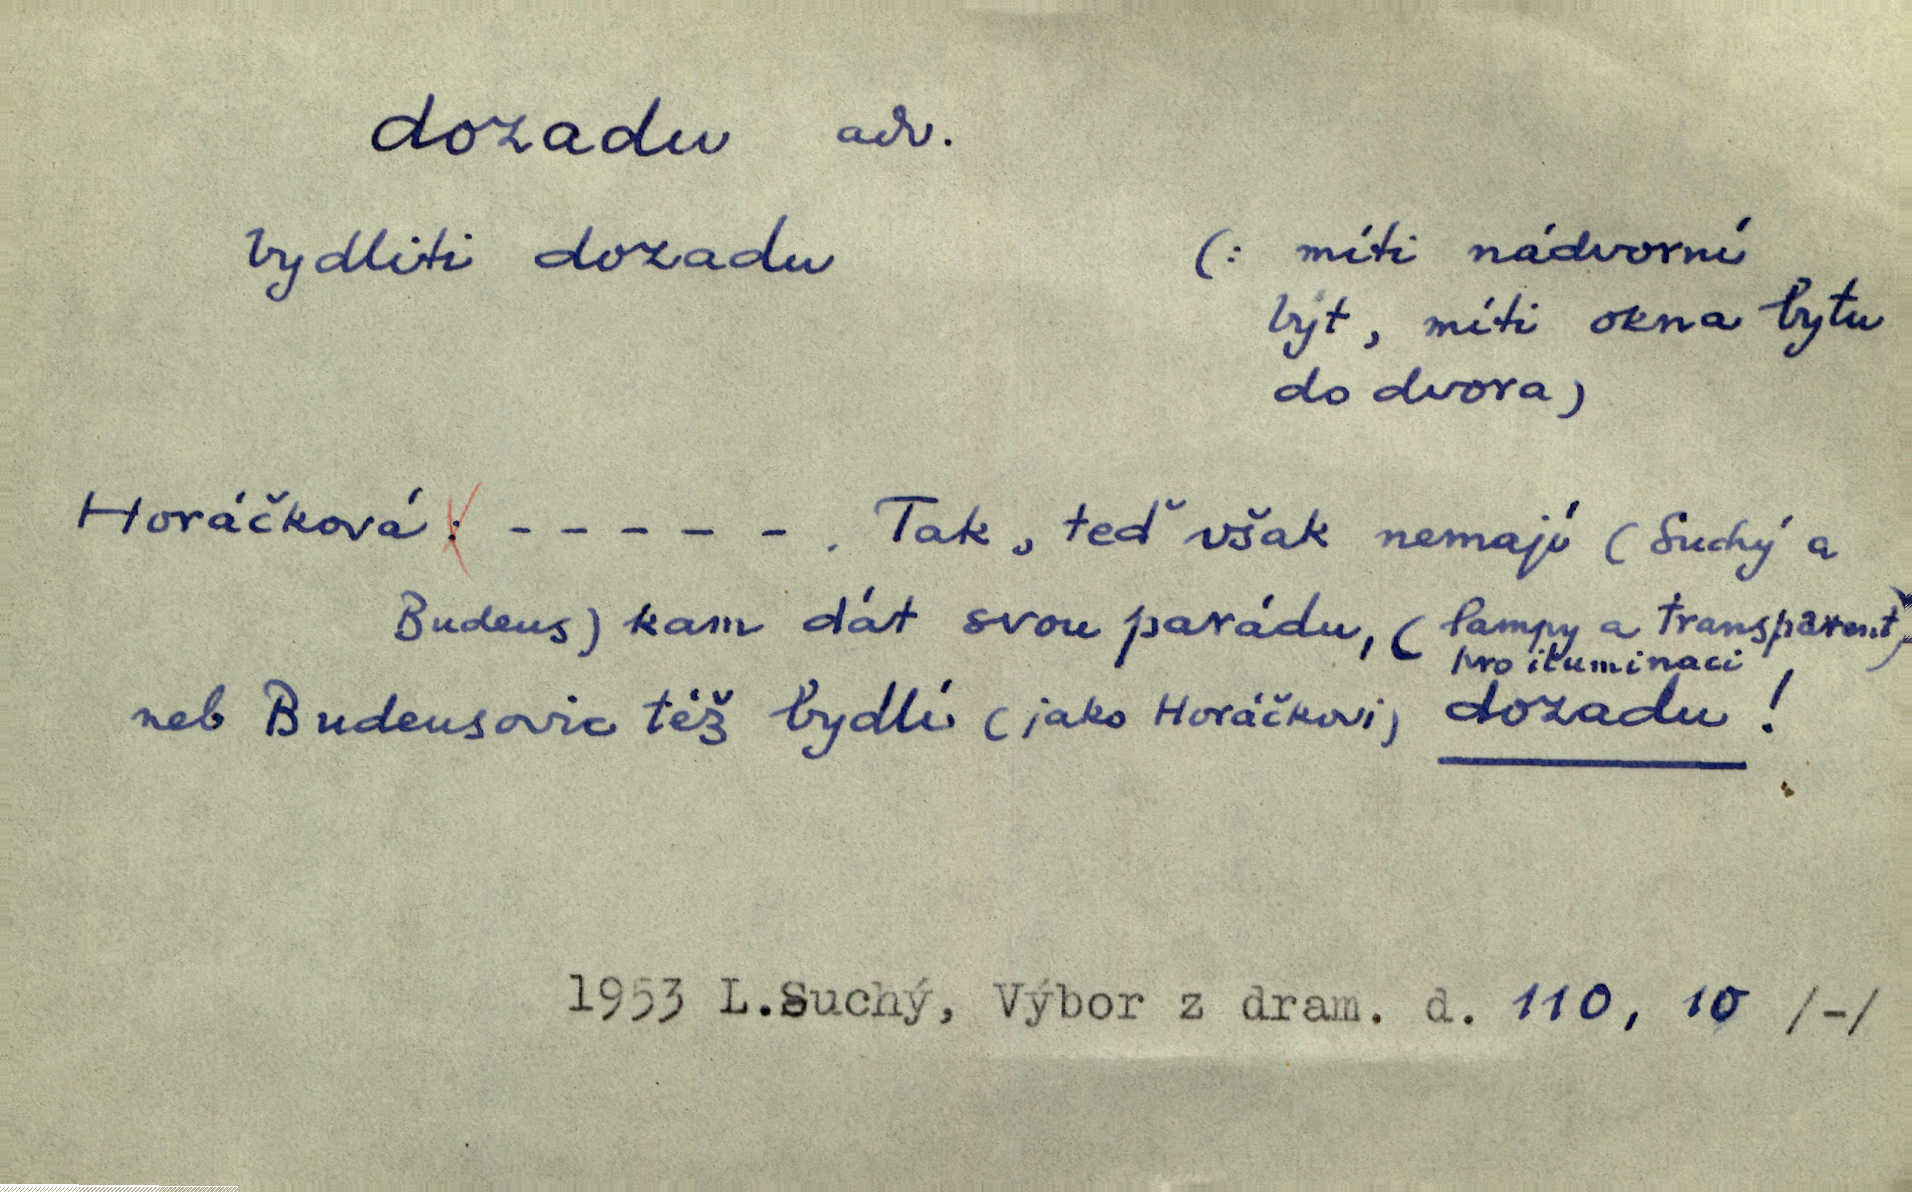 dozadu adv.
bydliti dozadu (: míti nádvorní
být, míti okna bytu
do dvora)
Horáčková: - - - - - . Tak, teď však nemají (Suchý a
Budeus) kam dát svou parádu, (lampy a transparent,
pro iluminaci
neb Budeusovic též bydlí (jako Horáčkovi) dozadu!
1953 L.Suchý, Výbor z dram. d. 110, 10 /-/